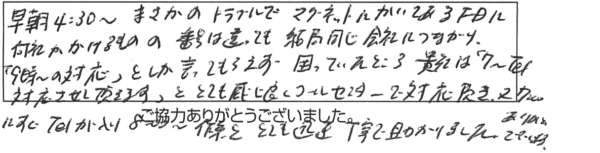 早朝4:30～ まさかのトラブルで マグネットにかいてあるFDに
何社かかけるものの 番号は違っても 結局同じ会社につながり、
「9時～の対応」としか言ってもらえず 困っていたところ 貴社は「7～Tel
対応させて頂きます」と とても感じ良いコールセンターで対応頂き、又
にすぐTelがあり 8 ～ 作業も とても迅速 丁寧で助かりました。
ご協力ありがとうございました。
ありがとう
ございます